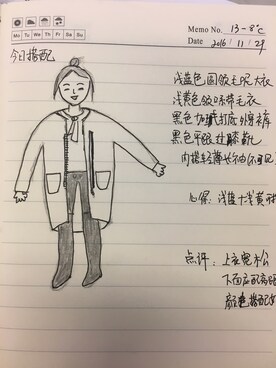 Memo No. 13-8℃
Mo Tu We Th Fr Sa Su
Date 2016 / 11 / 29
今日搭配
浅蓝色圆领毛呢大衣
浅黄色领 带毛衣
黑色 打底外穿裤
黑色平跟过膝靴
内搭轻薄 (不可见)
心得: 浅蓝+浅黄
点评: 上衣宽松
下面应配高跟
颜色搭配